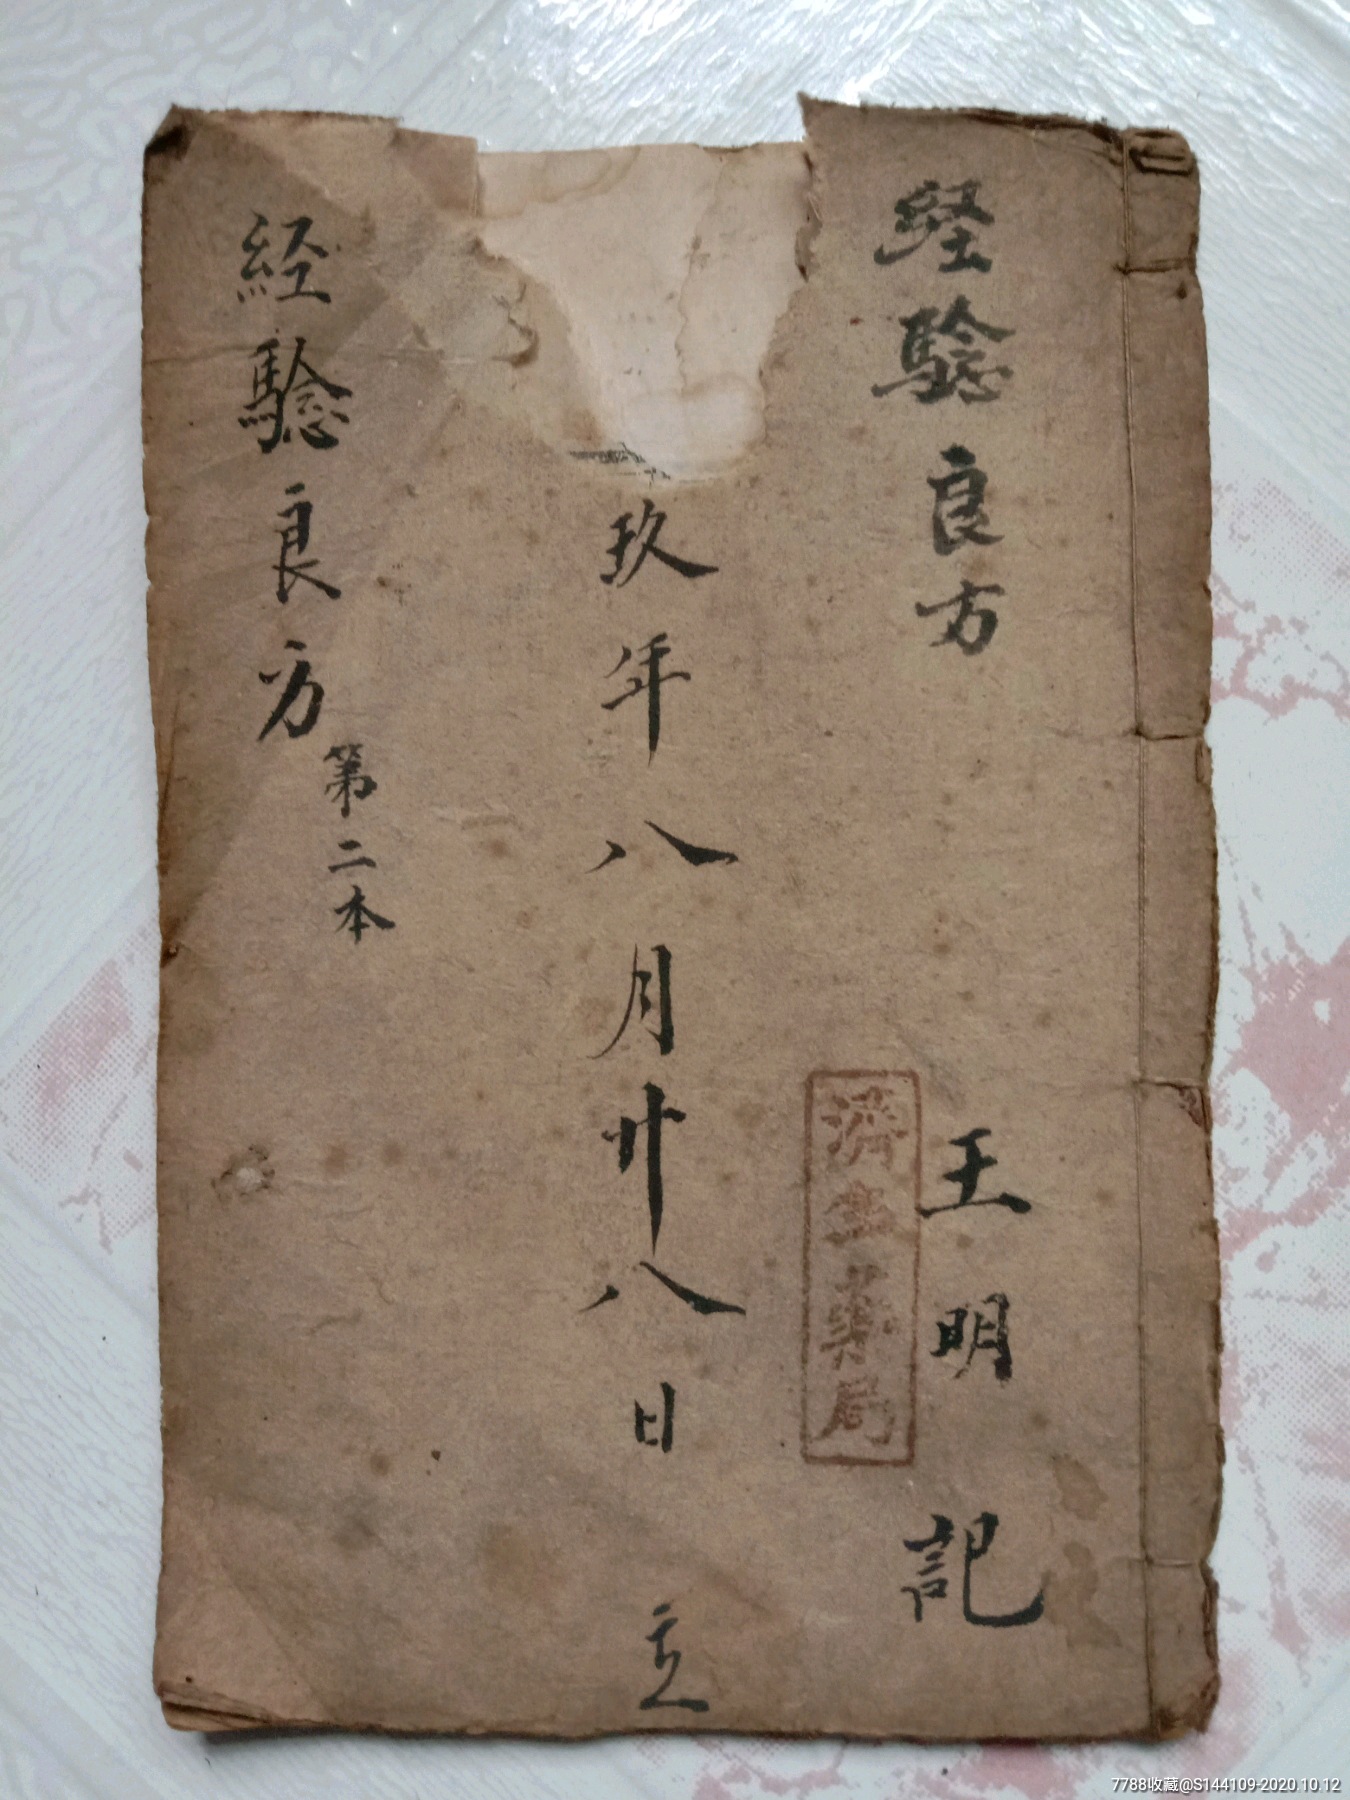 经驗良方
王明記
濟生藥局
玖年八月廿八日立
经驗良方
第二本
7788收藏@S144109-2020.10.12